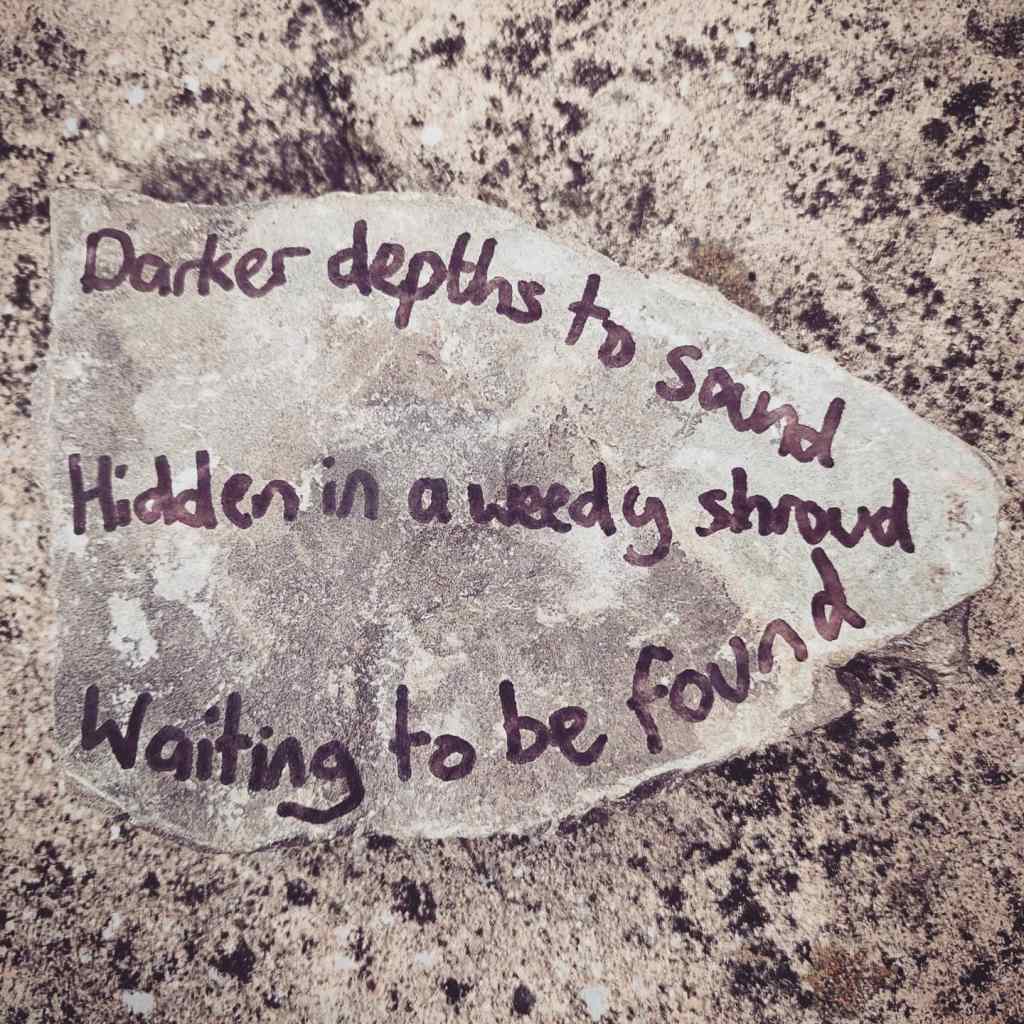 Darker depths to sound
Hidden in a weedy shroud
Waiting to be found